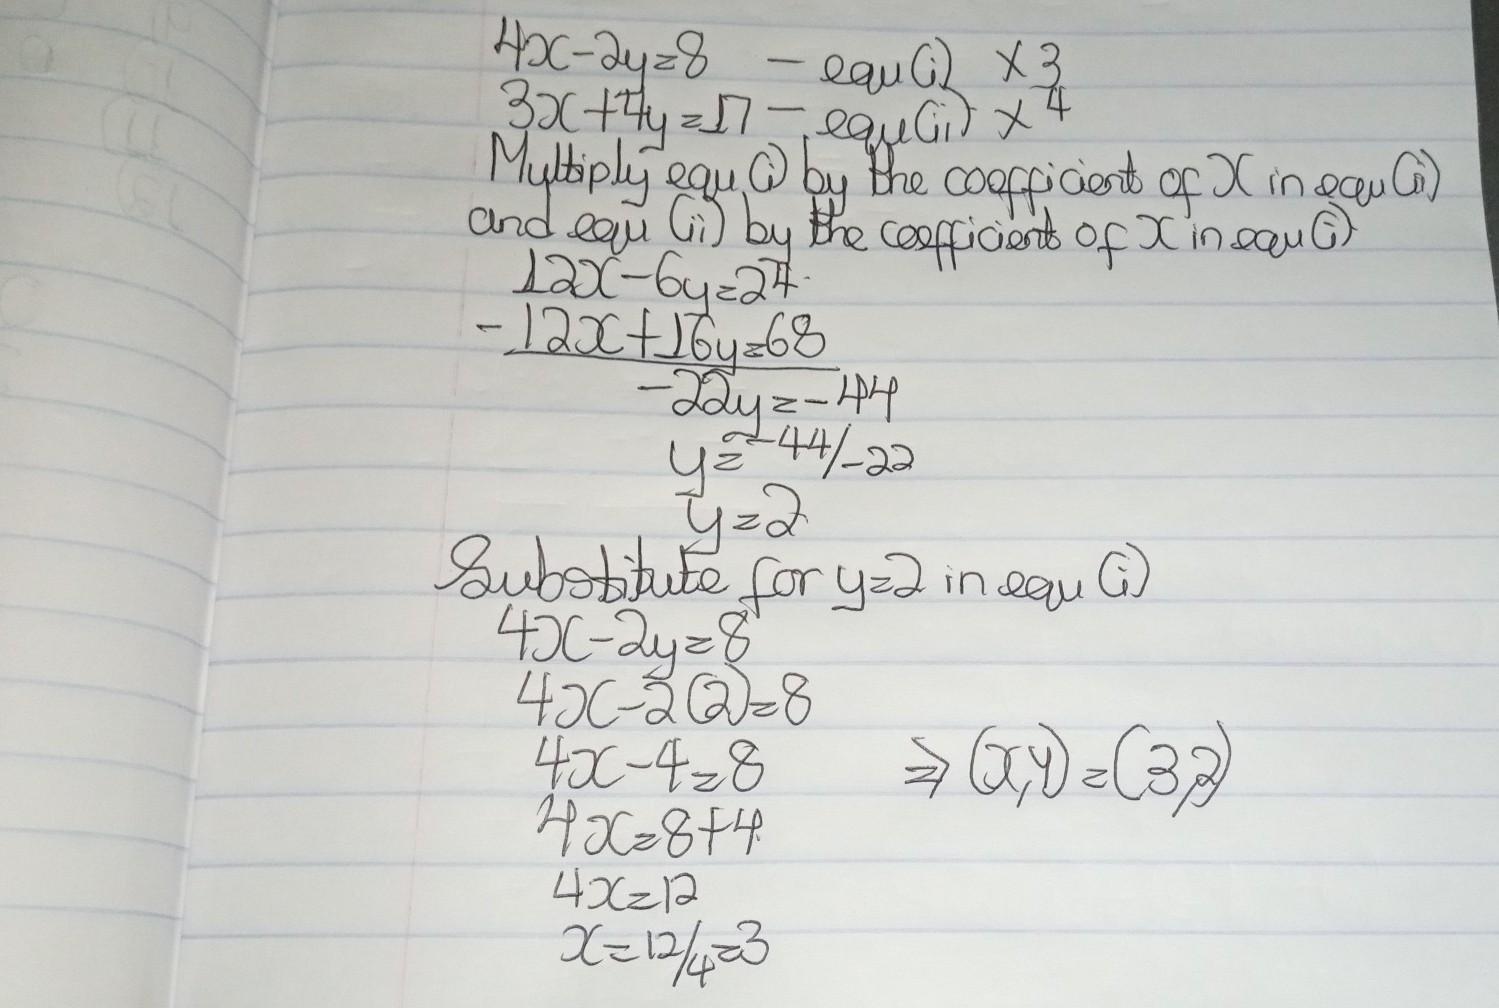 4x-2y=8 - equ(i) ×3
3x+4y=17 - equ(ii) ×4
Multiply equ(i) by the coefficient of x in equ(ii)
and equ(ii) by the coefficient of x in equ(i)
12x-6y=24
-12x+16y=68
-22y=-44
y=-44/-22
y=2
Substitute for y=2 in equ(i)
4x-2y=8
4x-2(2)=8
4x-4=8 ⇒(x,y)=(3,2)
4x=8+4
4x=12
x=12/4=3